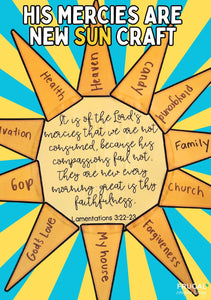 HIS MERCIES ARE
NEW SUN CRAFT
Health
Heaven
Candy
playground
Family
church
Forgiveness
My house
God's Love
God
It is of the Lord's
mercies that we are not
consumed, because his
compassions fail not.
They are new every
morning: great is thy
faithfulness.
Lamentations 3:22-23
FRUGAL